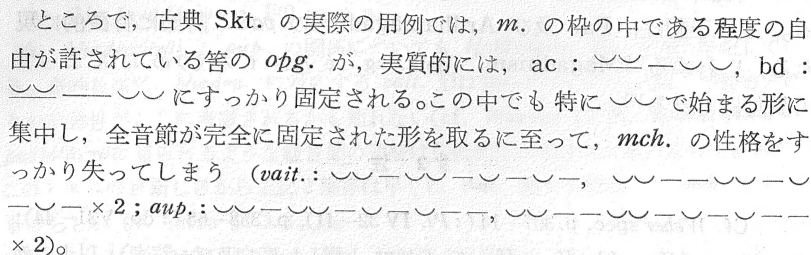 ところで，古典 Skt. の実際の用例では，m. の枠の中である程度の自
由が許されている筈の opg. が，実質的には， ac : ⏔ — ⏑ ⏑, bd :
⏔ — — ⏑⏑ にすっかり固定される。この中でも 特に ⏑⏑ で始まる形に
集中し，全音節が完全に固定された形を取るに至って，mch. の性格をす
っかり失ってしまう (vait.: ⏑⏑—⏑⏑—⏑—⏑—, ⏑⏑——⏑⏑—⏑
—⏑—×2 ; aup.: ⏑⏑—⏑⏑—⏑—⏑——, ⏑⏑——⏑⏑—⏑—⏑——
×2)。